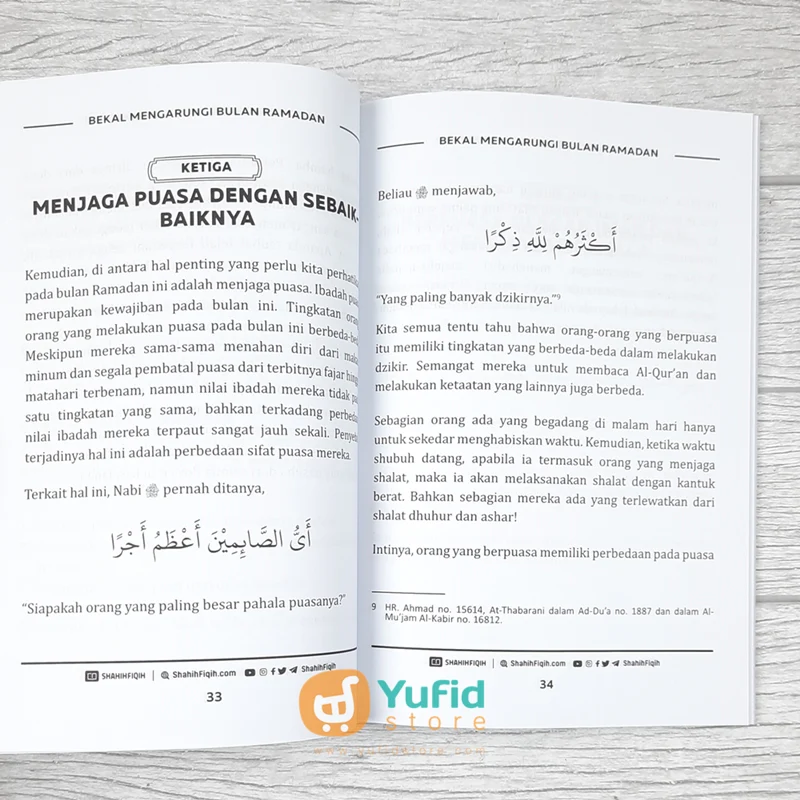 BEKAL MENGARUNGI BULAN RAMADAN
KETIGA
MENJAGA PUASA DENGAN SEBAIK-
BAIKNYA
Kemudian, di antara hal penting yang perlu kita
pada bulan Ramadan ini adalah menjaga puasa. Ibadah
merupakan kewajiban pada bulan ini. Tingkatan
orang yang melakukan puasa pada bulan ini
Meskipun mereka sama-sama menahan diri dari
minum dan segala pembatal puasa dari terbitnya fajar
matahari terbenam, namun nilai ibadah mereka tidak
satu tingkatan yang sama, bahkan terkadang
nilai ibadah mereka terpaut sangat jauh sekali.
terjadinya hal ini adalah perbedaan sifat puasa mereka.
Terkait hal ini, Nabi ﷺ pernah ditanya,
أَيُّ الصَّائِمِيْنَ أَعْظَمُ أَجْرًا
“Siapakah orang yang paling besar pahala puasanya?”
SHAHIHFIQIH | ShahihFiqih.com ShahihFiqih
33
BEKAL MENGARUNGI BULAN RAMADAN
Beliau ﷺ menjawab,
أَكْثَرُهُمْ لِلَّهِ ذِكْرًا
“Yang paling banyak dzikirnya.”⁹
Kita semua tentu tahu bahwa orang-orang yang berpuasa
itu memiliki tingkatan yang berbeda-beda dalam melakukan
dzikir. Semangat mereka untuk membaca Al-Qur’an dan
melakukan ketaatan yang lainnya juga berbeda.
Sebagian orang ada yang begadang di malam hari hanya
untuk sekedar menghabiskan waktu. Kemudian, ketika waktu
shubuh datang, apabila ia termasuk orang yang menjaga
shalat, maka ia akan melaksanakan shalat dengan kantuk
berat. Bahkan sebagian mereka ada yang terlewatkan dari
shalat dhuhur dan ashar!
Intinya, orang yang berpuasa memiliki perbedaan pada puasa
9 HR. Ahmad no. 15614, At-Thabarani dalam Ad-Du’a no. 1887 dan dalam Al-
Mu’jam Al-Kabir no. 16812.
SHAHIHFIQIH | ShahihFiqih.com ShahihFiqih
34
Yufid
store
www.yufidstore.com